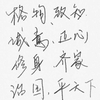 格物 致知
诚意 正心
修身 齐家
治国 平天下